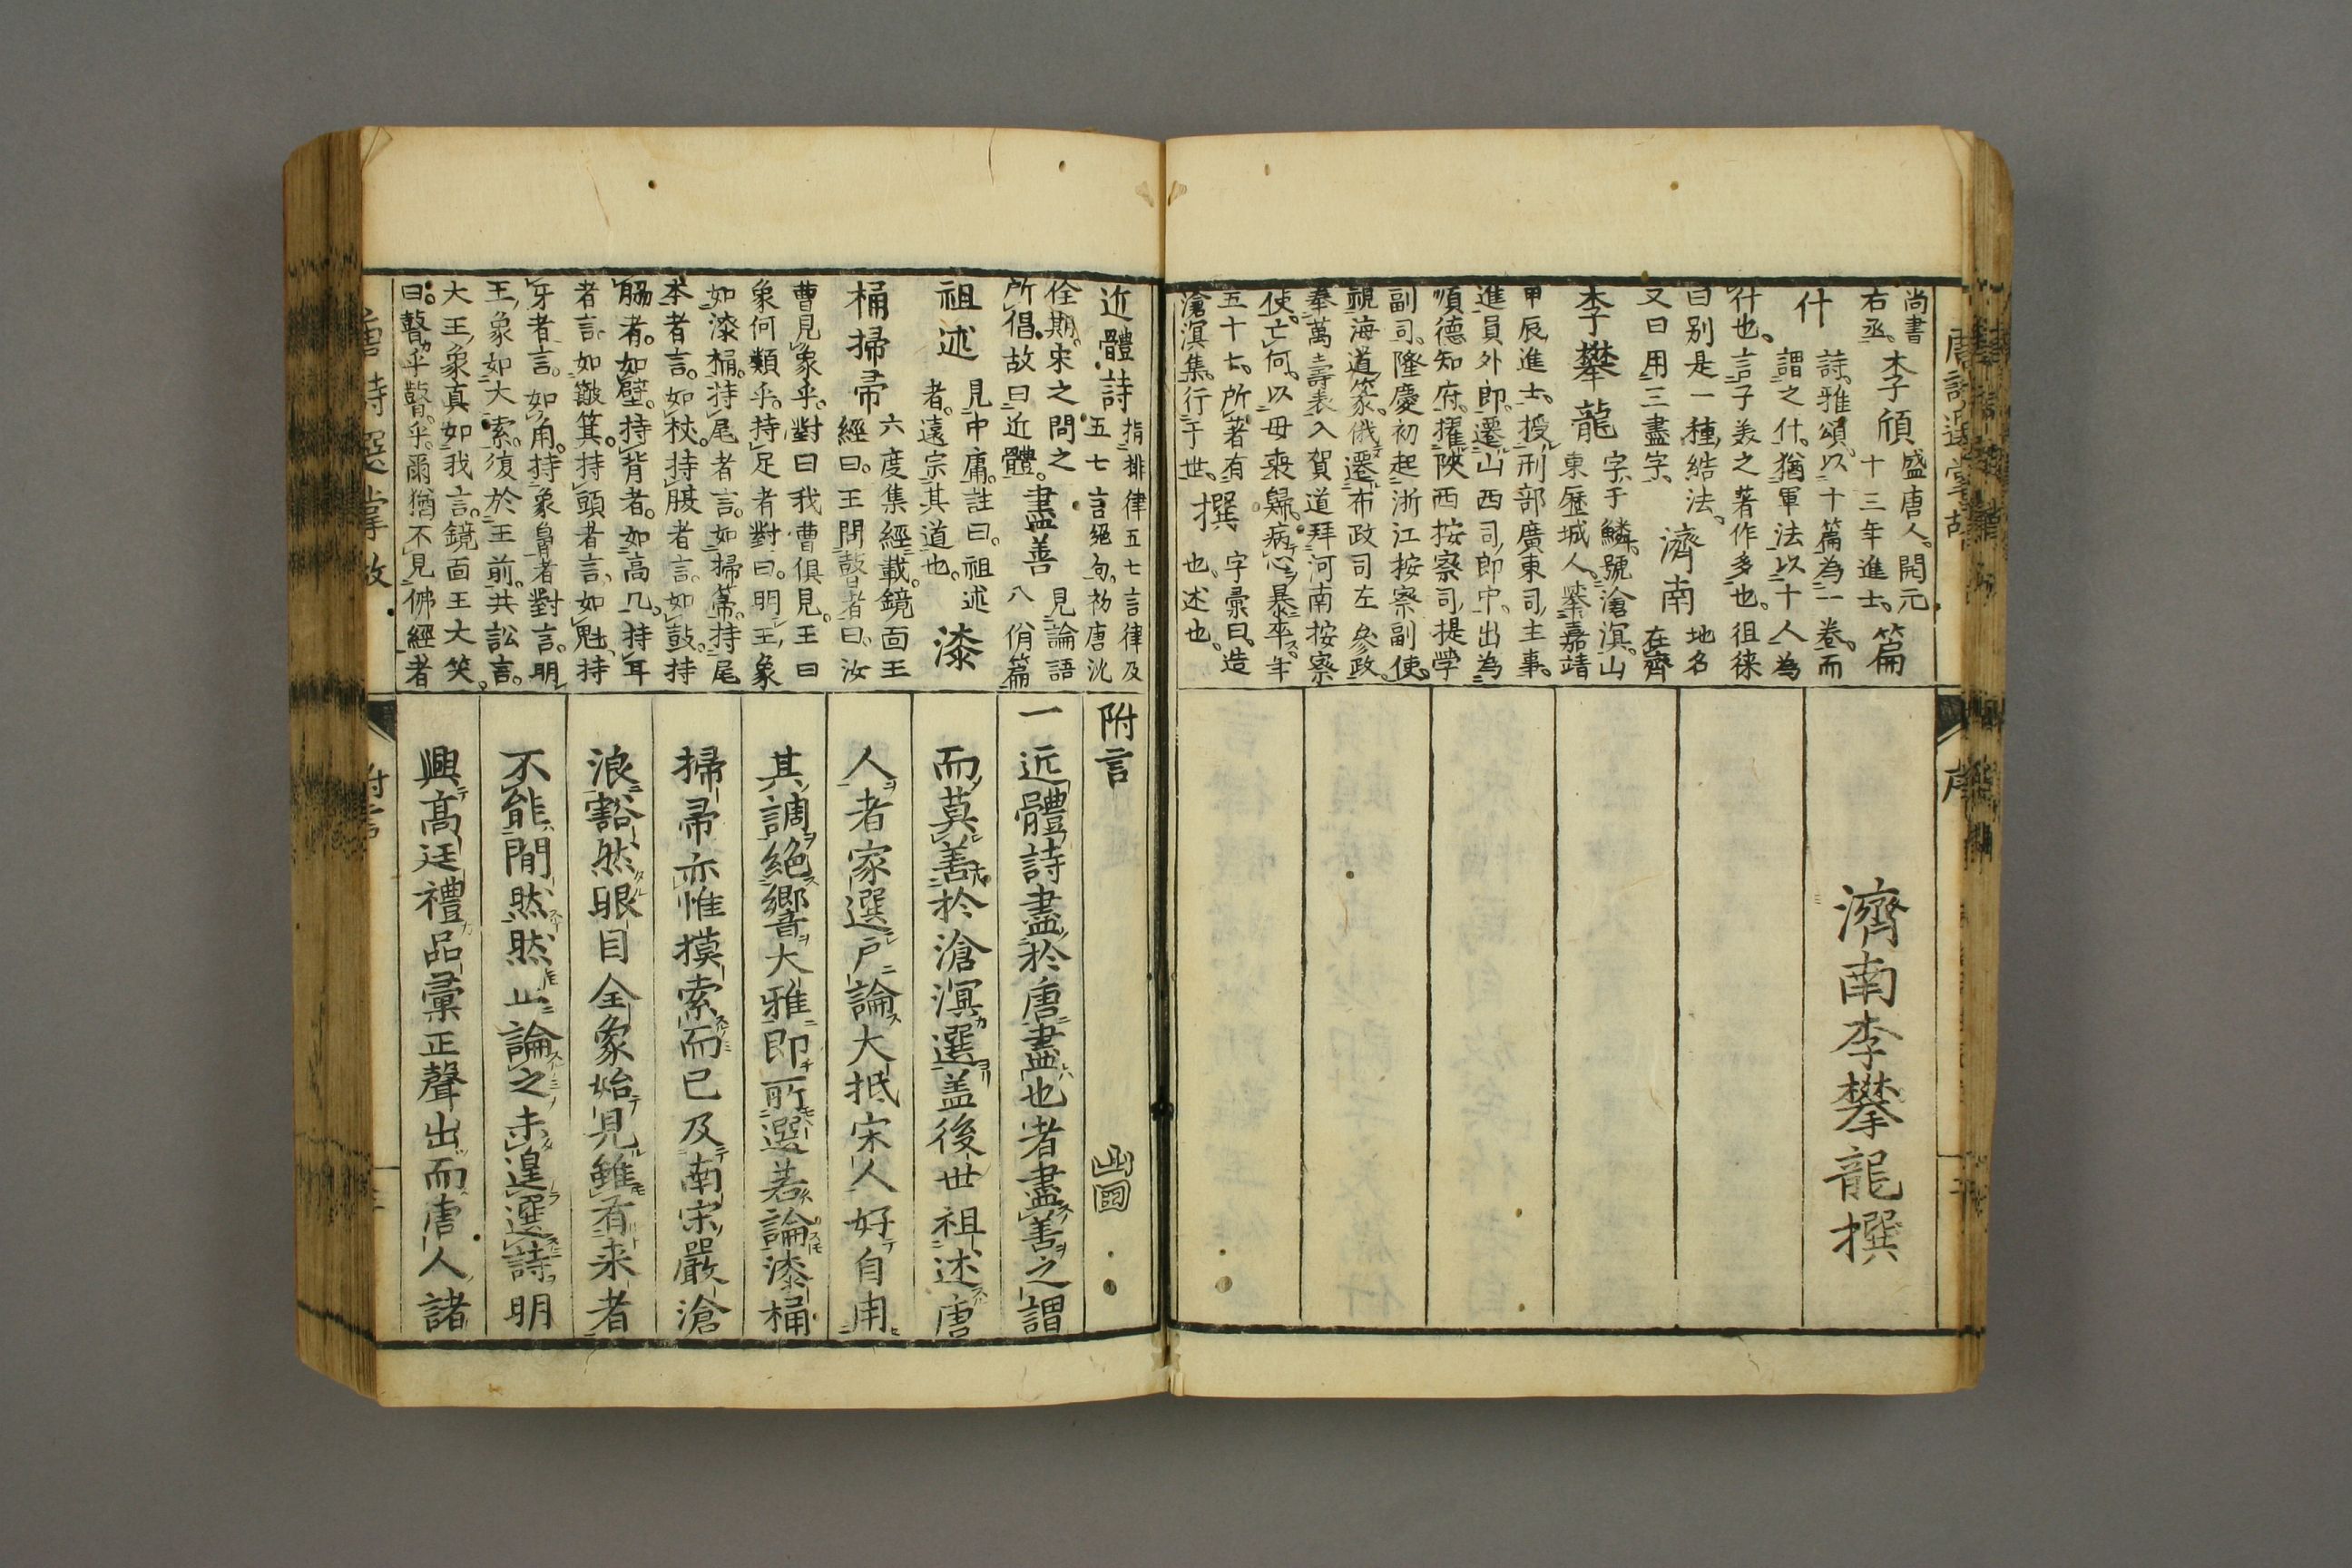 唐詩選掌故
序
尚書
右丞。李頎盛唐人。開元
十三年進士。篇
什詩雅頌。以十篇為一卷。而
謂之什。猶軍法以十人為
什也。言子美之著作多也。徂徠
曰別是一種結法。濟南地名
又曰用三盡字。在齊
李攀龍字于鱗。號滄溟。山
東歷城人。舉嘉靖
甲辰進士。授刑部廣東司主事。
進員外郎。遷山西司郎中。出為
順德知府。擢陝西按察司提學
副司。隆慶初起浙江按察副使。
視海道篆。俄遷布政司左參政。
奉萬壽表入賀道拜河南按察
使。亡何。以母喪歸。病心暴卒年
五十七。所著有撰字彙曰。造
滄溟集。行于世。也。述也。
濟南李攀龍撰
近體詩指排律五七言律及
五七言絕句。初唐沈
佺期。宋之問之
所倡。故曰近體。盡善見論語
八佾篇
祖述見中庸。註曰。祖述
者。遠宗其道也。漆
桶掃帚六度集經載。鏡面王
經曰。王問瞽者曰。汝
曹見象乎。對曰我曹俱見。王曰
象何類乎。持足者對曰。明王象
如漆桶。持尾者言。如掃帚。持尾
本者言。如杖。持腹者言。如鼓。持
脇者。如壁。持背者。如高几。持耳
者言。如簸箕。持頭者言。如魁。持
牙者言。如角。持象鼻者對言。明
王象如大索。復於王前。共訟言。
大王象真如我言。鏡面王大笑。
曰。瞽乎瞽乎。爾猶不見佛經者
附言
一近體詩盡於唐盡也者盡善之謂
而莫善於滄溟選蓋後世祖述唐
人者家選戶論大抵宋人好自用
其調絕響大雅即所選若論漆桶
掃帚亦惟摸索而已及南宋嚴滄
浪豁然眼目全象始見雖有来者
不能間然然止論之未遑選詩明
興高廷禮品彙正聲出而唐人諸
唐詩選掌故
附言